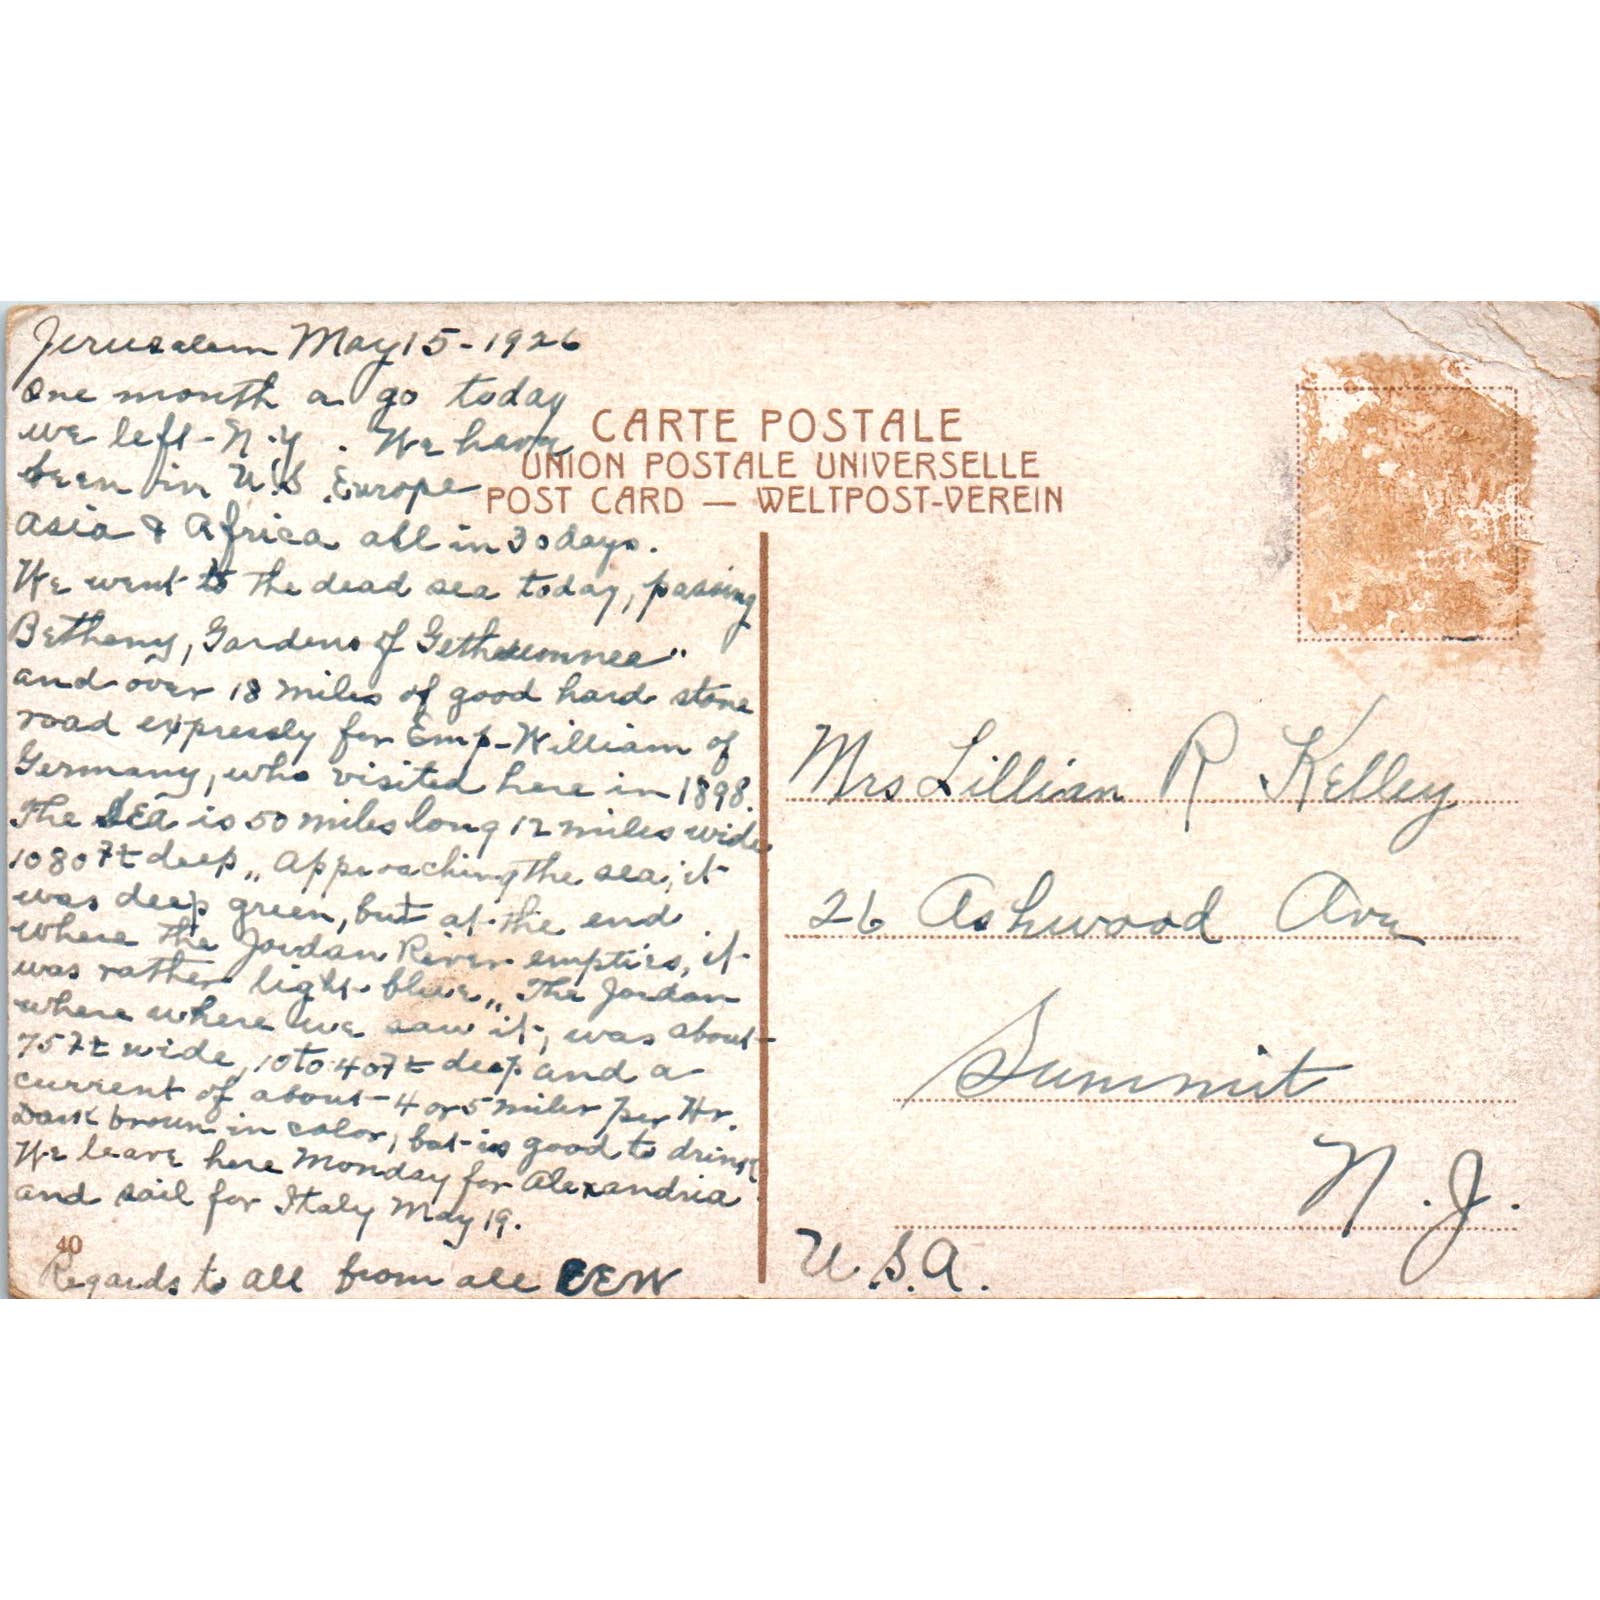 Jerusalem May 15-1926
One month a go today
we left N.Y. We have
been in U.S. Europe
Asia & Africa all in 30 days.
We went to the dead sea today, passing
Bethany, Gardens of
and over 18 miles of good hard stone
road expressly for Emp-William of
Germany, who visited here in 1898.
The SEA is 50 miles long 12 miles wide
1080 ft deep,, Approaching the sea, it
was deep green, but at the end
where the Jordan River empties, it
was rather light blue,, The Jordan
where where we saw it, was about
75 ft wide, 10 to 40 ft deep and a
current of about 4 or 5 miles per Hr.
Dark brown in color, but is good to drink
We leave here Monday for Alexandria
and sail for Italy May 19.
40
Regards to all from all EEW
CARTE POSTALE
UNION POSTALE UNIVERSELLE
POST CARD — WELTPOST-VEREIN
Mrs Lillian R Kelley
26 Ashwood Ave
Summit
N.J.
U.S.A.